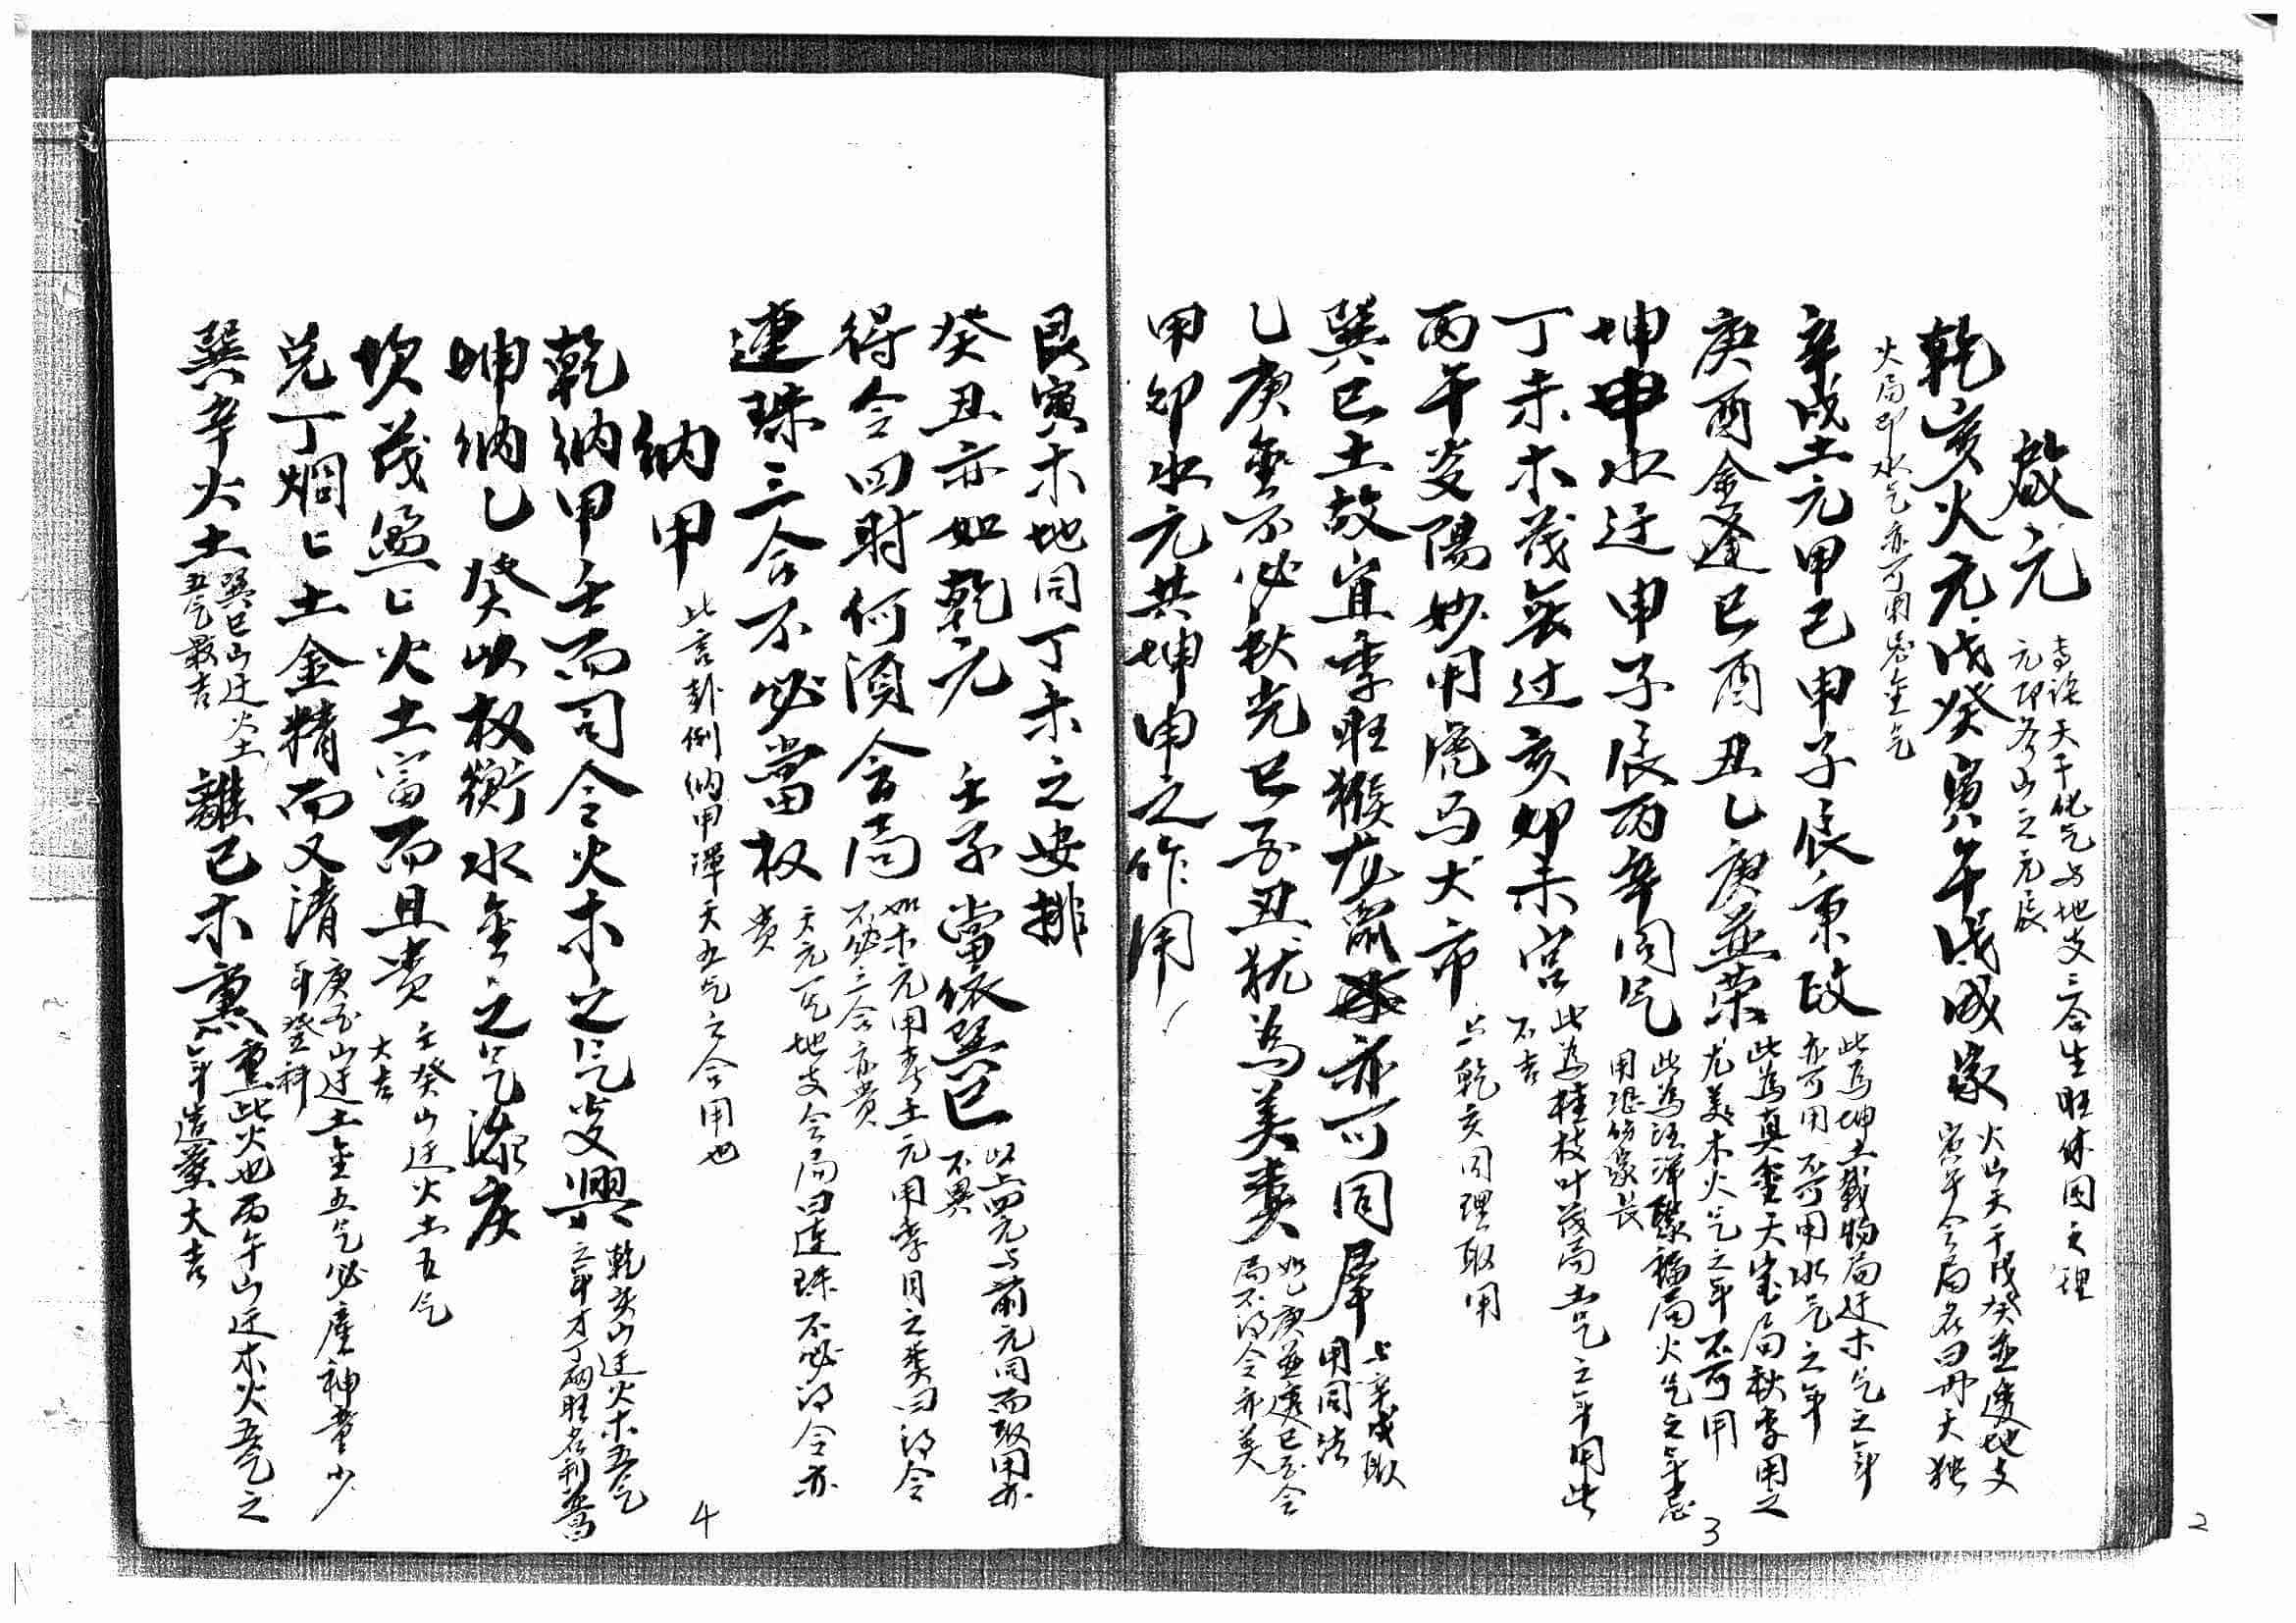 啟元 專論天干化气与地支三合生旺休囚之理
元即各山之元辰
乾亥火元戊癸寅午戌成家 火山天干戊癸並透地支
寅午会局名曰丙天独
火局即水气亦可用忌金气
辛戌土元甲己申子辰秉政 此為坤土載物局迂木气之年
亦可用不可用水气之年
庚酉金逢巳酉丑乙庚並荣 此為真金天宝局秋季用之
尤美木火气之年不可用
坤申水迂申子辰丙辛同气 此為汪洋聚福局火气之年忌
用恐伤家长
丁未木茂衰过亥卯未宫 此為桂枝叶茂局土气之年用此
不吉
丙午炎陽妙用虎马犬市 与乾亥同理取用
巽巳土故宜季旺猴龙鼠亦可同羣 与辛戌取
用同法
乙庚金不必秋光巳酉丑犹為美貴 如乙庚並透巳酉会
局不得令亦美
甲卯水元共坤申之作用
艮寅木地同丁未之安排
癸丑亦如乾元 壬子當依巽巳 以上四元与前元同而取用亦
不異
得令四時何須会局 如木元用春土元用季月之类曰得令
不必三合亦貴
連珠三合不必當权 天元一气地支会局曰連珠不必得令亦
貴
納甲 此言卦例納甲渾天五气之合用也
乾納甲壬而司令火木之气发興 乾亥山迂火木五气
之年才丁两旺名利普
坤納乙癸以权衡水金之气流庆
坎茂盈匕火土富而且贵 壬癸山迂火土五气
大吉
兑丁烟匕土金精而又清 庚酉山迂土金五气必産神童少
年登科
巽辛火土 巽巳山迂火土
五气最吉
離己木熏 重此火也丙午山迂木火五气之
年造葬大吉
4
3
2